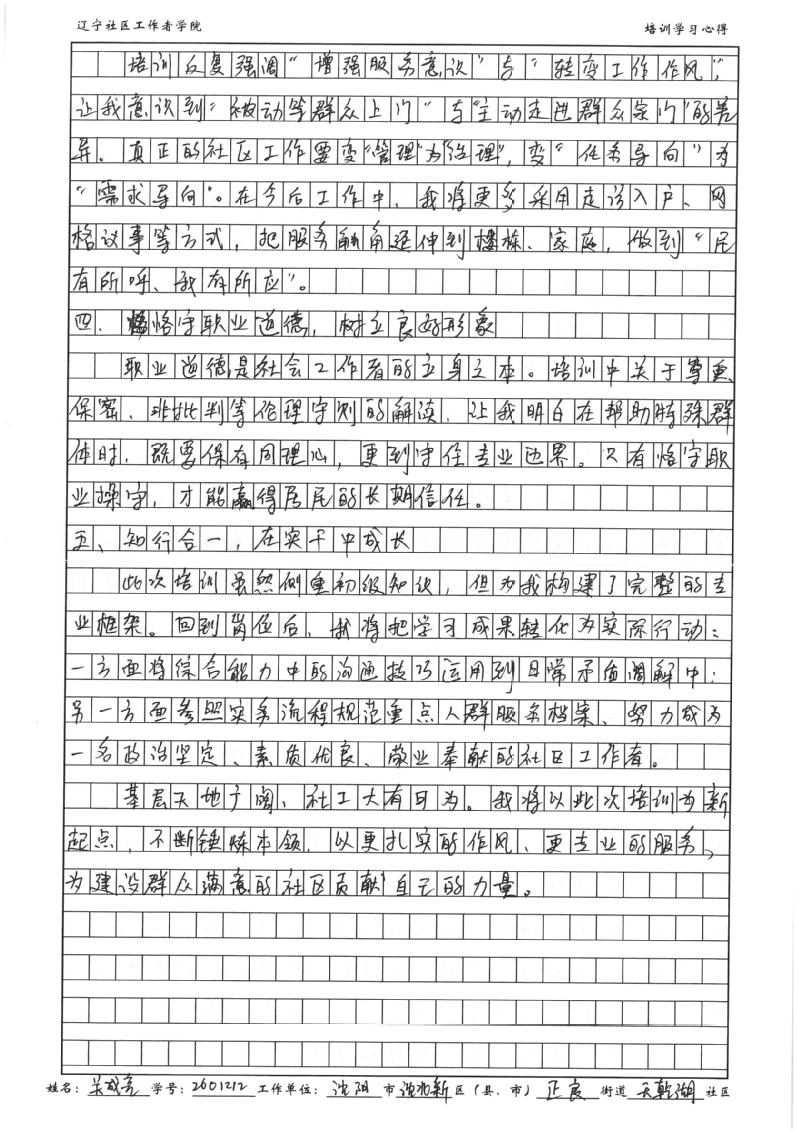 辽宁社区工作者学院 培训学习心得
培训反复强调“增强服务意识”与“转变工作作风”,
让我意识到“被动等群众上门”与“主动走进群众家门”的差
异。真正的社区工作要变“管理”为“治理”,变“任务导向”为
“需求导向”。在今后工作中,我将更多采用走访入户、网
格议事等方式,把服务触角延伸到楼栋、家庭,做到“民
有所呼、我有所应”。
四、恪守职业道德,树立良好形象
职业道德是社会工作者的立身之本。培训中关于尊重、
保密、非批判等伦理守则的解读,让我明白在帮助特殊群
体时,既要保有同理心,更到守住专业边界。只有恪守职
业操守,才能赢得居民的长期信任。
五、知行合一,在实干中成长
此次培训虽然侧重初级知识,但为我构建了完整的专
业框架。回到岗位后,我将把学习成果转化为实际行动:
一方面将综合能力中的沟通技巧运用到日常矛盾调解中;
另一方面参照实务流程规范重点人群服务档案、努力成为
一名政治坚定、素质优良、敬业奉献的社区工作者。
基层天地广阔、社工大有可为。我将以此次培训为新
起点,不断锤炼本领,以更扎实的作风、更专业的服务、
为建设群众满意的社区贡献自己的力量。
姓名:关成亮 学号:2601212 工作单位:沈阳市沈北新区(县、市)正良街道天乾湖社区